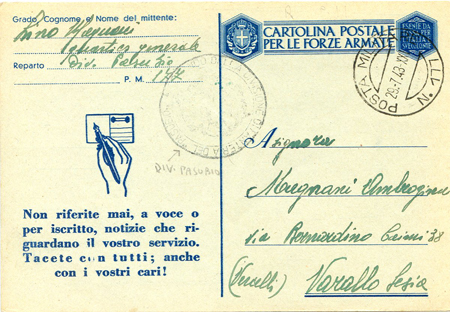 Grado, Cognome, e Nome del mittente:
Magnani
Quartier generale
Reparto Div. Pasubio
P. M.
CARTOLINA POSTALE
PER LE FORZE ARMATE
POSTA MIL
29.7.43
DIV. PASUBIO
Non riferite mai, a voce o
per iscritto, notizie che ri-
guardano il vostro servizio.
Tacete con tutti; anche
con i vostri cari!
Signora
Magnani Ambrogina
via Bernardino 38
(Vercelli) Varallo Sesia